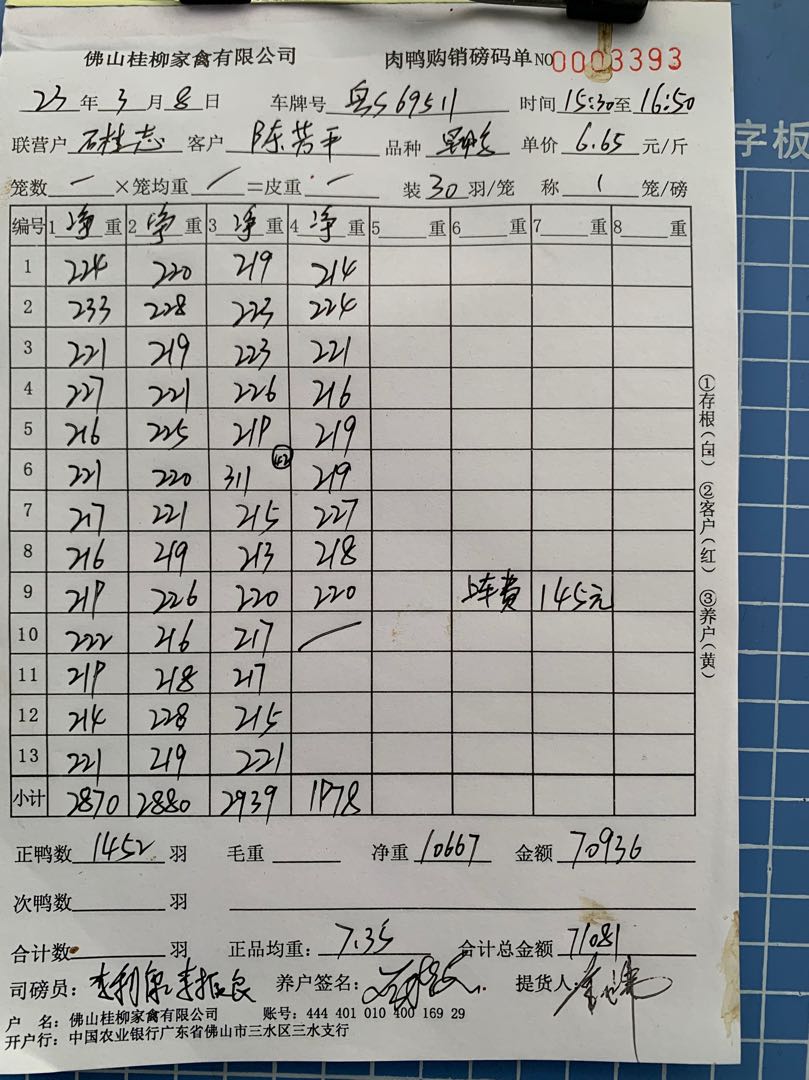 佛山桂柳家禽有限公司 肉鸭购销磅码单 NO 0003393
23 年 3 月 8 日 车牌号 粤S69511 时间 15:30 至 16:50
联营户 石桂志 客户 陈芳平 品种 单价 6.65 元/斤
笼数 一 ×笼均重 / =皮重 一 装 30 羽/笼 称 1 笼/磅
编号 1 净 重 2 净 重 3 净 重 4 净 重 5 重 6 重 7 重 8 重
1 224 220 219 214
2 233 228 223 224
3 221 219 223 221
4 227 221 226 216
5 216 225 219 219
6 221 220 311 42 219
7 217 221 215 227
8 216 219 213 218
9 219 226 220 220 上车费 145元
10 222 216 217 /
11 219 218 217
12 214 228 215
13 221 219 221
小计 2870 2880 2939 1978
正鸭数 1452 羽 毛重 净重 10667 金额 70936
次鸭数 羽
合计数 羽 正品均重: 7.35 合计总金额 71081
司磅员: 养户签名: 提货人:
户 名: 佛山桂柳家禽有限公司 账号: 444 401 010 400 169 29
开户行: 中国农业银行广东省佛山市三水区三水支行
①存根(白) ②客户(红) ③养户(黄)
字板